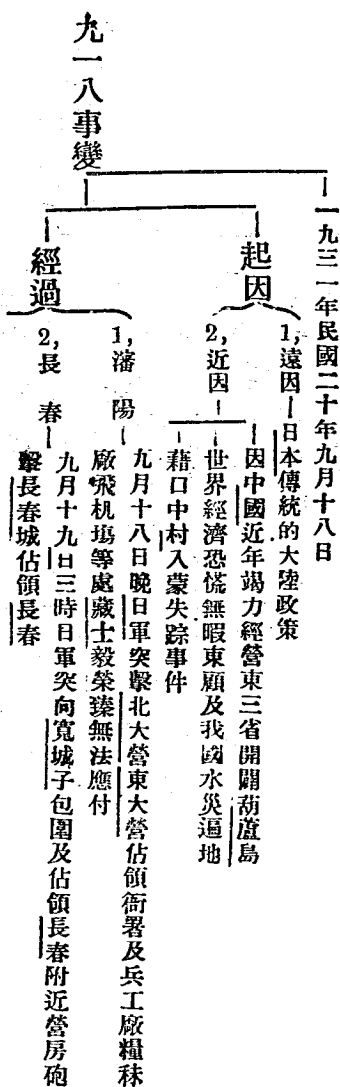 九一八事變
一九三一年民國二十年九月十八日
起因
1,遠因
日本傳統的大陸政策
2,近因
因中國近年竭力經營東三省開闢葫蘆島
世界經濟恐慌無暇東顧及我國水災遍地
藉口中村入蒙失踪事件
經過
1,瀋陽
九月十八日晚日軍突擊北大營東大營佔領衙署及兵工廠糧秣
廠飛机塲等處藏士毅榮臻無法應付
2,長春
九月十九日三時日軍突向寬城子包圍及佔領長春附近營房砲
擊長春城佔領長春